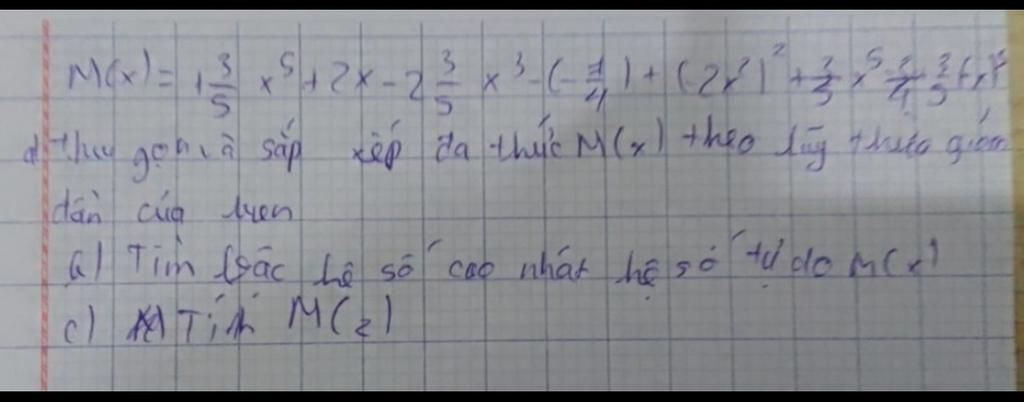 M(x) = 1 3/5 x⁵ + 2x - 2 3/5 x³ - (-1/4) + (-2x²)² + 3/5 x⁵
thu gọn và sắp xếp đa thức M(x) theo lũy thừa giảm
dần của
b) Tìm bậc hệ số cao nhất hệ số tự do M(x)
c) Tính M(2)